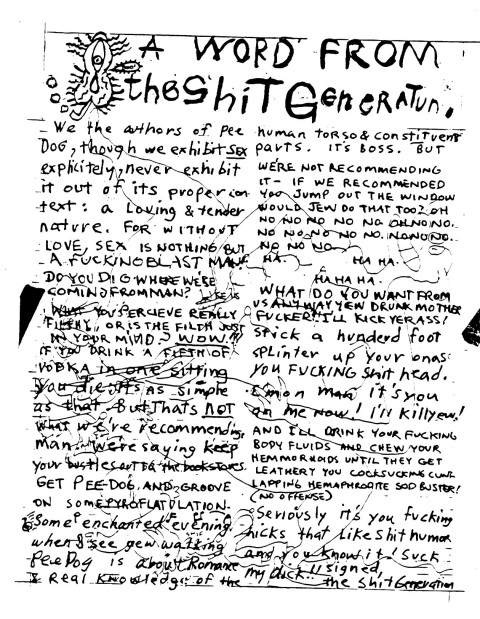 A WORD FROM
the ShiT GeneraTun.
We the authors of Pee
Dog, though we exhibit sex
explicitely, never exhibit
it out of its proper con
text: a Loving & tender
nature. FOR WITHOUT
LOVE, SEX IS NOTHING BUT
A FUCKING BLAST MAN!
DO YOU DIG WHERE WE'RE
COMING FROM MAN?
WHAT YOU PERCIEVE REALLY
FILTHY, OR IS THE FILTH JUST
IN YOUR MIND? WOW!!!
IF YOU DRINK A FIFTH OF
VODKA in one sitting
you die. It's as simple
as that. But Thats NOT
what we're recommending,
man. We're saying keep
your bustles out to the bookstores
GET PEE-DOG AND GROOVE
ON SOME PYROFLATULATION.
Some enchanted evening
when I see yew walking
Pee Dog is about Romance
& Real Knowledge of the
human torso & constituent
parts. IT'S BOSS. BUT
WE'RE NOT RECOMMENDING
IT - IF WE RECOMMENDED
YOU JUMP OUT THE WINDOW
WOULD JEW DO THAT TOO? OH
NO NO NO NO NO OH NO NO.
NO NO NO NO NO. NO NO NO.
NO NO NO
HA. HA HA.
HA HA HA.
WHAT DO YOU WANT FROM
US ANYWAY YEW DRUNK MOTHER
FUCKER? I'LL KICK YER ASS!
Stick a hunderd foot
splinter up your anas
you FUCKING Shit head.
C'mon man it's you
an me now! I'll kill yew!
AND I'LL DRINK YOUR FUCKING
BODY FLUIDS AND CHEW YOUR
HEMMORHOIDS UNTIL THEY GET
LEATHERY YOU COCKSUCKING CUNT
LAPPING HEMAPHRODITE SOD BUSTER!
(NO OFFENSE)
Seriously it's you fucking
hicks that like shit humor
and you know it! Suck
my dick!! signed,
the Shit Generation